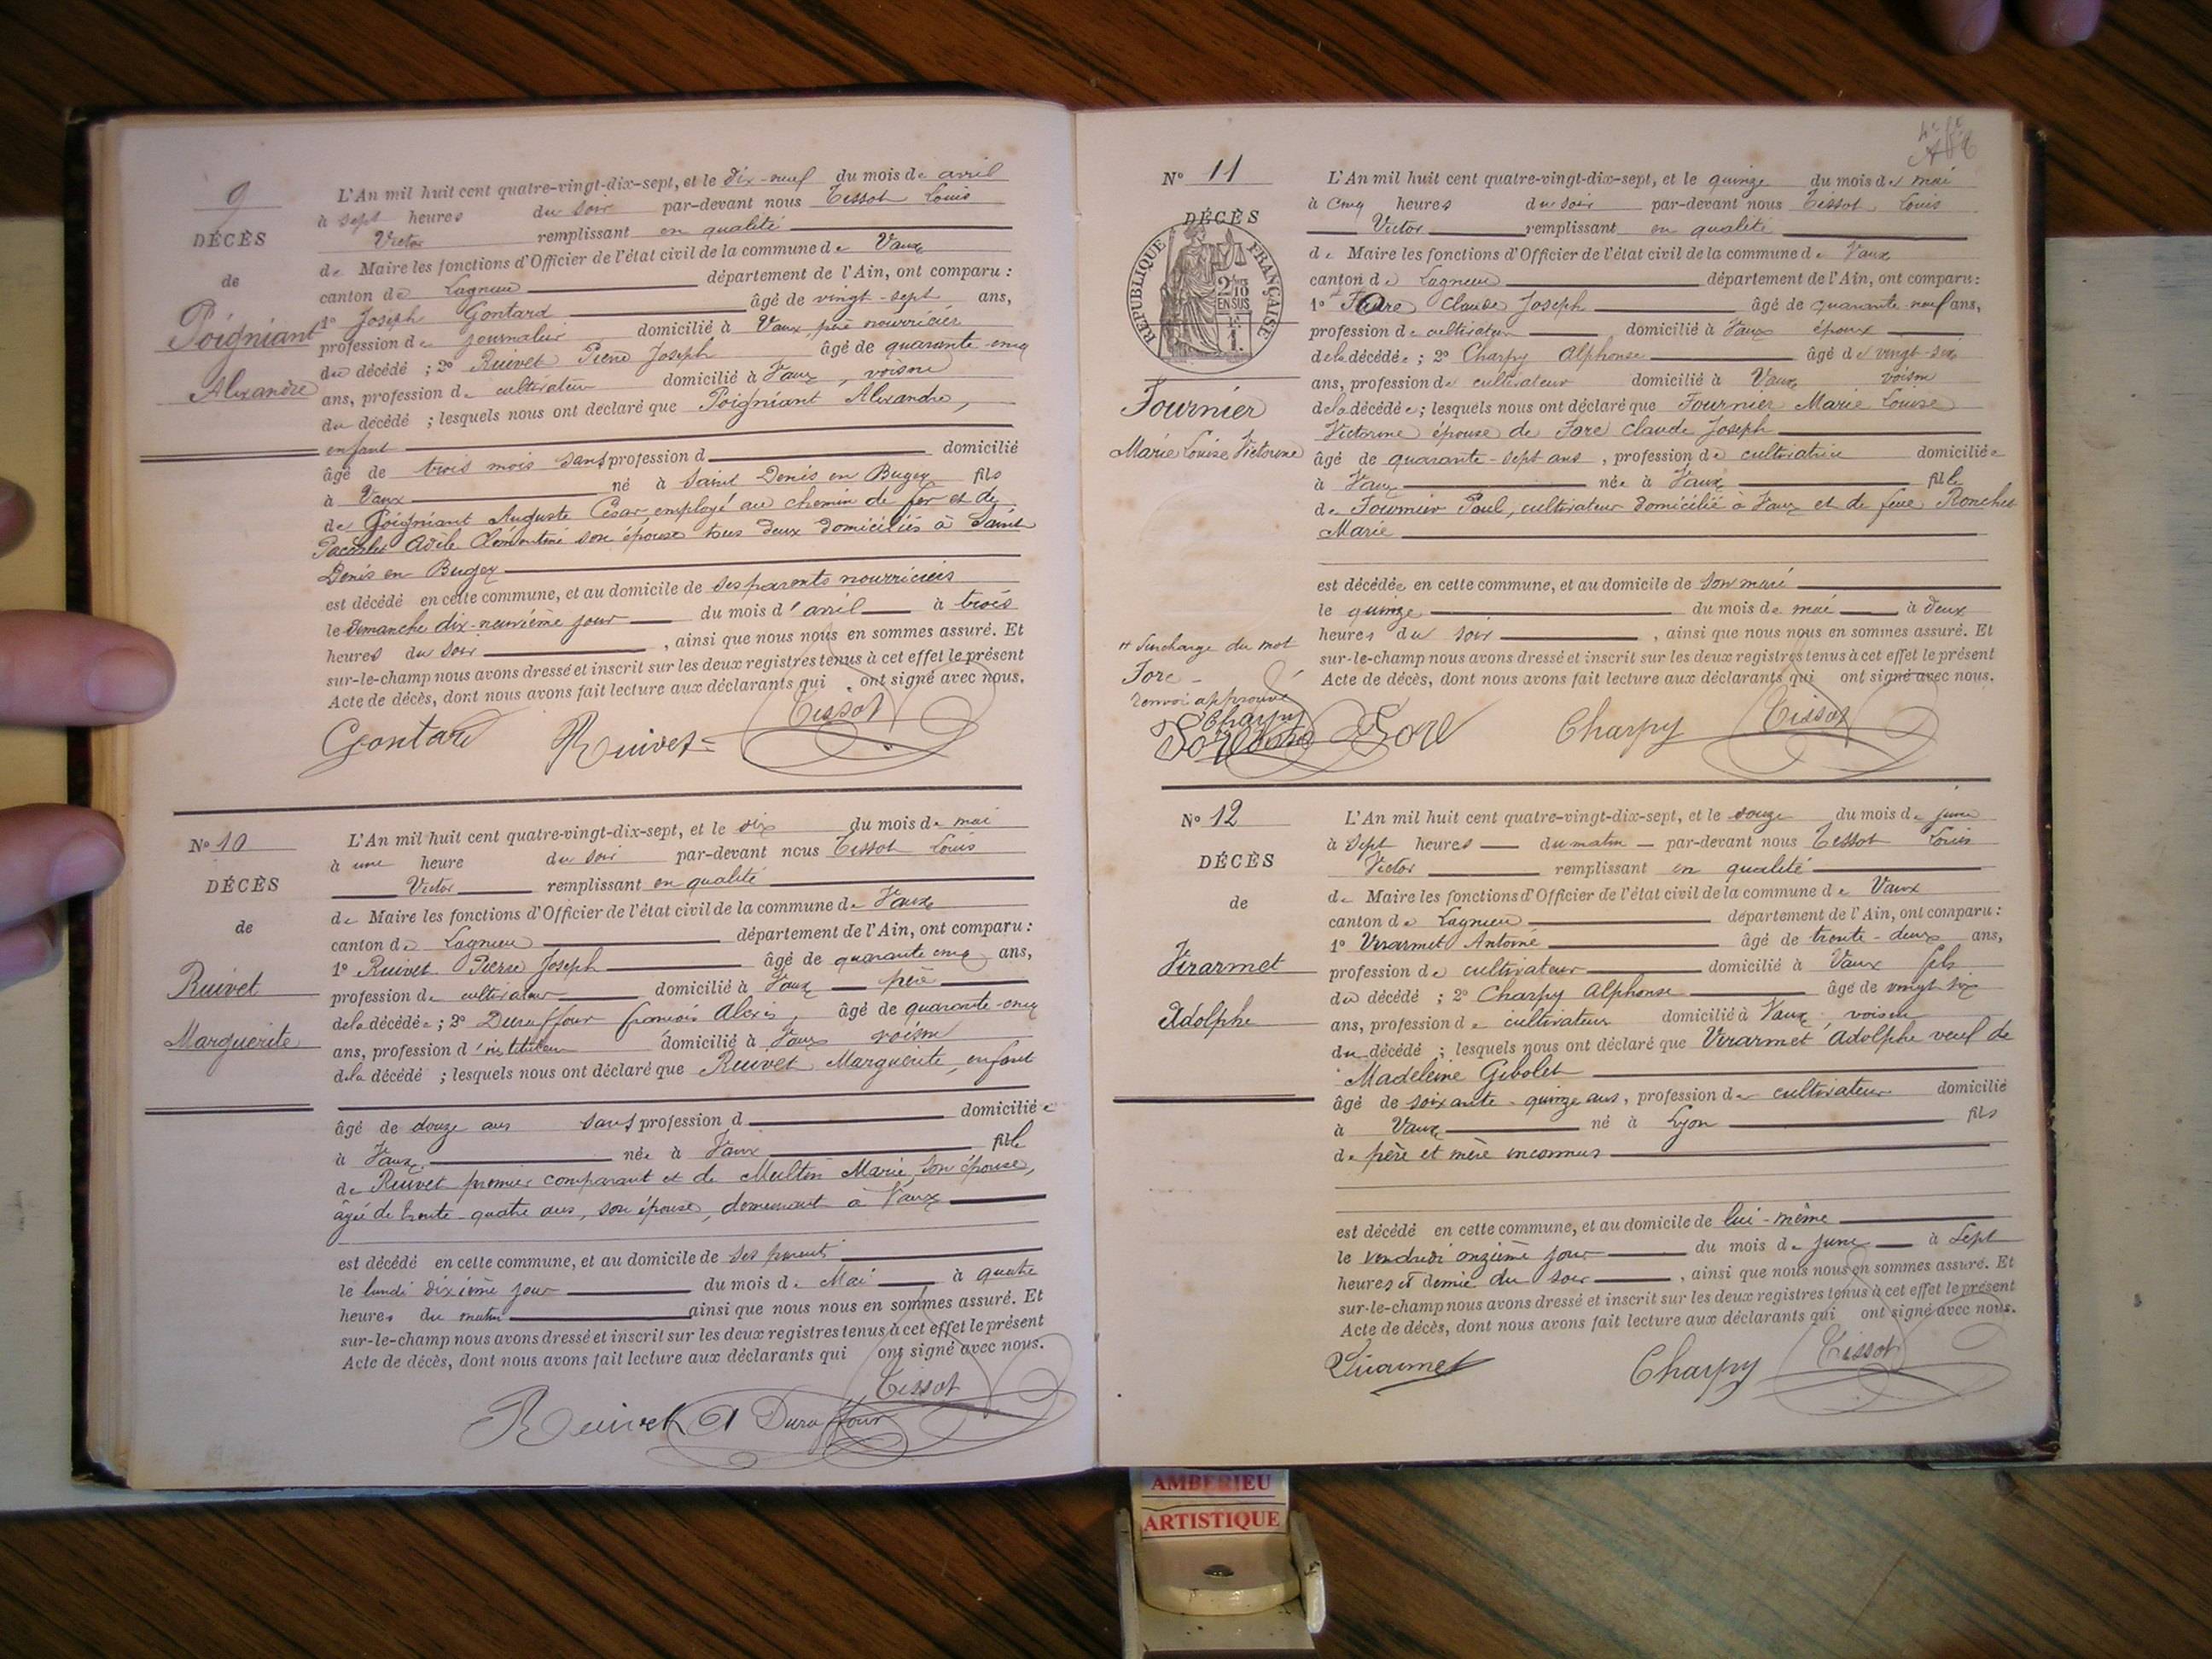 9
DÉCÈS
de
Poigniant
Alexandre
L'An mil huit cent quatre-vingt-dix-sept, et le dix-neuf du mois de avril
à sept heures du soir par-devant nous Tissot Louis
Victor remplissant en qualité
de Maire les fonctions d'Officier de l'état civil de la commune de Vaux
canton de Lagnieu département de l'Ain, ont comparu :
1º Joseph Gontard âgé de vingt-sept ans,
profession de journalier domicilié à Vaux, père nourricier
du décédé ; 2º Ruivet Pierre Joseph âgé de quarante-cinq
ans, profession de cultivateur domicilié à Vaux, voisin
du décédé ; lesquels nous ont déclaré que Poigniant Alexandre,
enfant
âgé de trois mois sans profession d domicilié
à Vaux né à Saint Denis en Bugey fils
de Poigniant Auguste César, employé au chemin de fer et de
Adèle Clémentine son épouse tous deux domiciliés à Saint
Denis en Bugey
est décédé en cette commune, et au domicile de ses parents nourriciers
le Dimanche dix-neuvième jour du mois d'avril à trois
heures du soir , ainsi que nous nous en sommes assuré. Et
sur-le-champ nous avons dressé et inscrit sur les deux registres tenus à cet effet le présent
Acte de décès, dont nous avons fait lecture aux déclarants qui ont signé avec nous.
Gontard Ruivet Tissot
Nº 10
DÉCÈS
de
Ruivet
Marguerite
L'An mil huit cent quatre-vingt-dix-sept, et le dix du mois de mai
à une heure du soir par-devant nous Tissot Louis
Victor remplissant en qualité
de Maire les fonctions d'Officier de l'état civil de la commune de Vaux
canton de Lagnieu département de l'Ain, ont comparu :
1º Ruivet Pierre Joseph âgé de quarante cinq ans,
profession de cultivateur domicilié à Vaux père
de la décédée ; 2º Duraffour françois Alexis, âgé de quarante-cinq
ans, profession d'instituteur domicilié à Vaux voisin
de la décédé ; lesquels nous ont déclaré que Ruivet Marguerite, enfant
âgé de douze ans sans profession d domiciliée
à Vaux, née à Vaux fille
de Ruivet premier comparant et de Multin Marie, son épouse,
âgée de trente-quatre ans, son épouse, demeurant à Vaux
est décédé en cette commune, et au domicile de ses parents
le lundi dixième jour du mois de Mai à quatre
heures du matin ainsi que nous nous en sommes assuré. Et
sur-le-champ nous avons dressé et inscrit sur les deux registres tenus à cet effet le présent
Acte de décès, dont nous avons fait lecture aux déclarants qui ont signé avec nous.
Tissot
Ruivet A Duraffour
Nº 11
DÉCÈS
RÉPUBLIQUE FRANÇAISE
2/10
EN SUS
Fournier
Marie Louise Victorine
L'An mil huit cent quatre-vingt-dix-sept, et le quinze du mois de mai
à cinq heures du soir par-devant nous Tissot Louis
Victor remplissant en qualité
de Maire les fonctions d'Officier de l'état civil de la commune de Vaux
canton de Lagnieu département de l'Ain, ont comparu :
1º Fore Claude Joseph âgé de quarante neuf ans,
profession de cultivateur domicilié à Vaux époux
de la décédée ; 2º Charpy Alphonse âgé de vingt-six
ans, profession de cultivateur domicilié à Vaux voisin
de la décédée ; lesquels nous ont déclaré que Fournier Marie Louise
Victorine épouse de Fore Claude Joseph
âgé de quarante-sept ans, profession de cultivatrice domiciliée
à Vaux née à Vaux fille
de Fournier Paul, cultivateur domicilié à Vaux et de feue Ronchet
Marie
est décédée en cette commune, et au domicile de son mari
le quinze du mois de mai à deux
heures du soir , ainsi que nous nous en sommes assuré. Et
sur-le-champ nous avons dressé et inscrit sur les deux registres tenus à cet effet le présent
Acte de décès, dont nous avons fait lecture aux déclarants qui ont signé avec nous.
Surcharge du mot
Fore
renvoi approuvé
Charpy
Fore Tissot
Fore Charpy Tissot
Nº 12
DÉCÈS
de
Virarmet
Adolphe
L'An mil huit cent quatre-vingt-dix-sept, et le douze du mois de juin
à sept heures du matin par-devant nous Tissot Louis
Victor remplissant en qualité
de Maire les fonctions d'Officier de l'état civil de la commune de Vaux
canton de Lagnieu département de l'Ain, ont comparu :
1º Virarmet Antoine âgé de trente-deux ans,
profession de cultivateur domicilié à Vaux fils
du décédé ; 2º Charpy Alphonse âgé de vingt six
ans, profession de cultivateur domicilié à Vaux, voisin
du décédé ; lesquels nous ont déclaré que Virarmet Adolphe veuf de
Madeleine Gibolet
âgé de soixante-quinze ans, profession de cultivateur domicilié
à Vaux né à Lyon fils
de père et mère inconnus
est décédé en cette commune, et au domicile de lui-même
le vendredi onzième jour du mois de juin à sept
heures et demie du soir , ainsi que nous nous en sommes assuré. Et
sur-le-champ nous avons dressé et inscrit sur les deux registres tenus à cet effet le présent
Acte de décès, dont nous avons fait lecture aux déclarants qui ont signé avec nous.
Virarmet Charpy Tissot
AMBERIEU
ARTISTIQUE